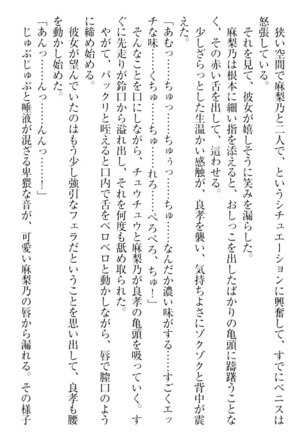 狭い空間で麻梨乃と二人で、というシチュエーションに興奮して、すでにペニスは
怒張している。
それを見て、彼女が嬉しそうに笑みを漏らした。
麻梨乃は根本に細い指を添えると、おしっこを出したばかりの亀頭に躊躇うことな
く、その赤い舌を出して、這わせる。
少しざらっとした生温かい感触が、良孝を襲い、気持ちよさにゾクゾクと背中が震
える。
「あむっ……ちゅっ……ちゅぅっ……ちゅ……なんだか濃い味がする……すごくエッ
チな味……くちゅっ……ちゅ……れろ……ぺろぺろ、ちゅ！」
そんなことを口にしながら、チュウチュウと麻梨乃が良孝の亀頭を吸っていく。す
ぐに先走りが鈴口から溢れ出し、それを何度も舐め取られた。
やがて、パックリと咥えると口内で舌をベロベロと動かしながら、唇で膣口のよう
に締め始める。
彼女が望んでいたのはもう少し強引なフェラだということを思い出して、良孝も腰
を動かし始めた。
「あんっ……んっ……んんっ……！」
じゅぶじゅぶと唾液が混ざる卑猥な音が、可愛い麻梨乃の唇から漏れる。その様子